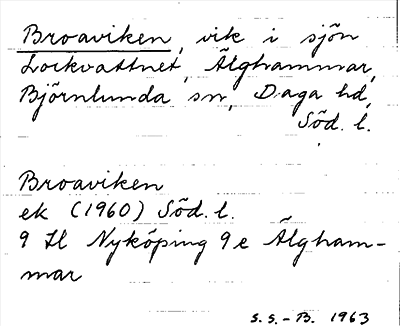 Broaviken, vik i sjön
Lockvattnet, Älghammar,
Björnlunda sn, Daga hd,
Söd. l.
Broaviken
ek (1960) Söd. l.
9 H Nyköping 9 e Älgham-
mar
S.S.-B. 1963